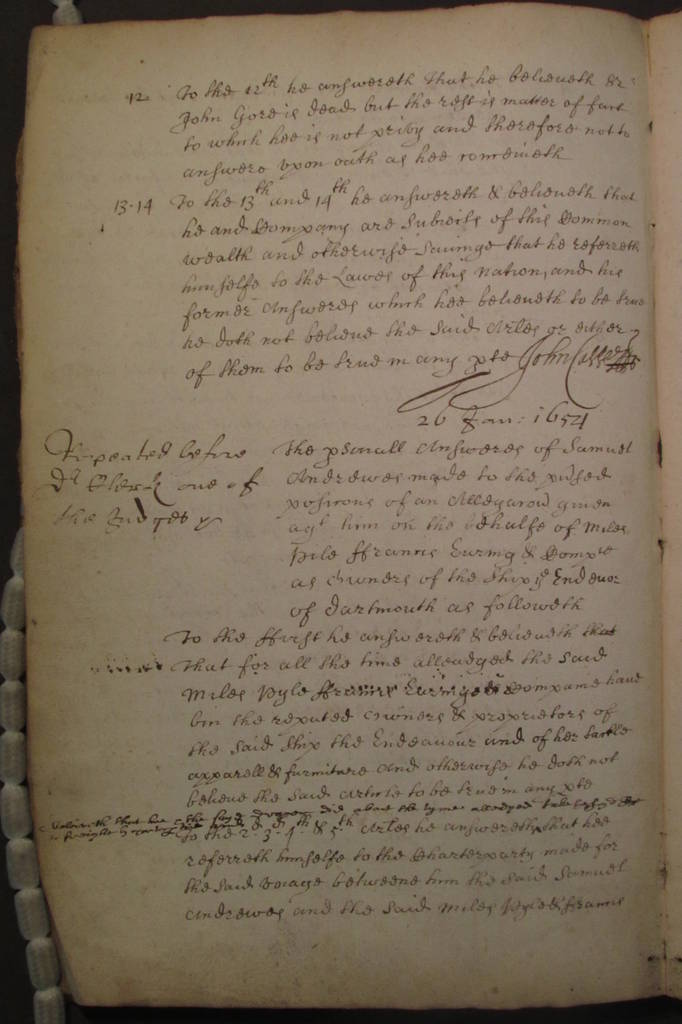 12 To the 12th he answereth that he beleeueth Sr:
John Gore is dead but the rest is matter of fact
to which hee is not priuy and therefore not to
answere vpon oath as hee conceiueth
13-14 To the 13th and 14th he answereth & beleeueth that
he and Company are Subiects of this Common
wealth and otherwise Sauinge that he referreth
himselfe to the Lawes of this nation, and his
former Answeres which hee beleeueth to be true
he doth not beleeue the said Arles or either
of them to be true in any pte John
26 Jan: 1654
Repeated before
Dr Clerk one of
the Judges
The psonall Answeres of Samuel
Andrewes made to the
positions of an Allegacon giuen
agt him on the behalfe of Miles
Pile ffrancis Euring & Compie
as owners of the Ship ye Endeuor
of Dartmouth as followeth
To the ffirst he answereth & beleeueth that
that for all the time alleadged the said
Miles Pyle ffrancis & Companie haue
bin the reputed Owners & proprietors of
the said Ship the Endeauour and of her tackle
apparell & furniture And otherwise he doth not
beleeue the said Article to be true in any pte
beleeueth that hee the sayd did about the tyme alledged take
to freight
To the 2d 3d 4th & 5th Arles he answereth, that hee
referreth himselfe to the Charterparty made for
the said voiage betweene him the said Samuel
Andrewes and the said Miles Pyle & ffrancis